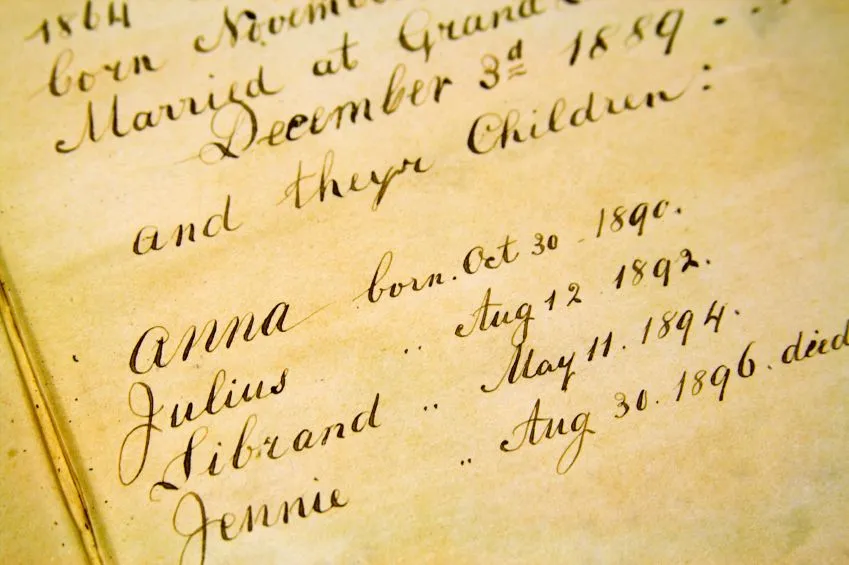 1864
born Novem
Married at Grand
December 3d 1889 - . .
and theyr Children:
Anna born. Oct 30 - 1890.
Julius .. Aug 12 1892.
Sibrand .. May 11. 1894.
Jennie .. Aug 30. 1896. died